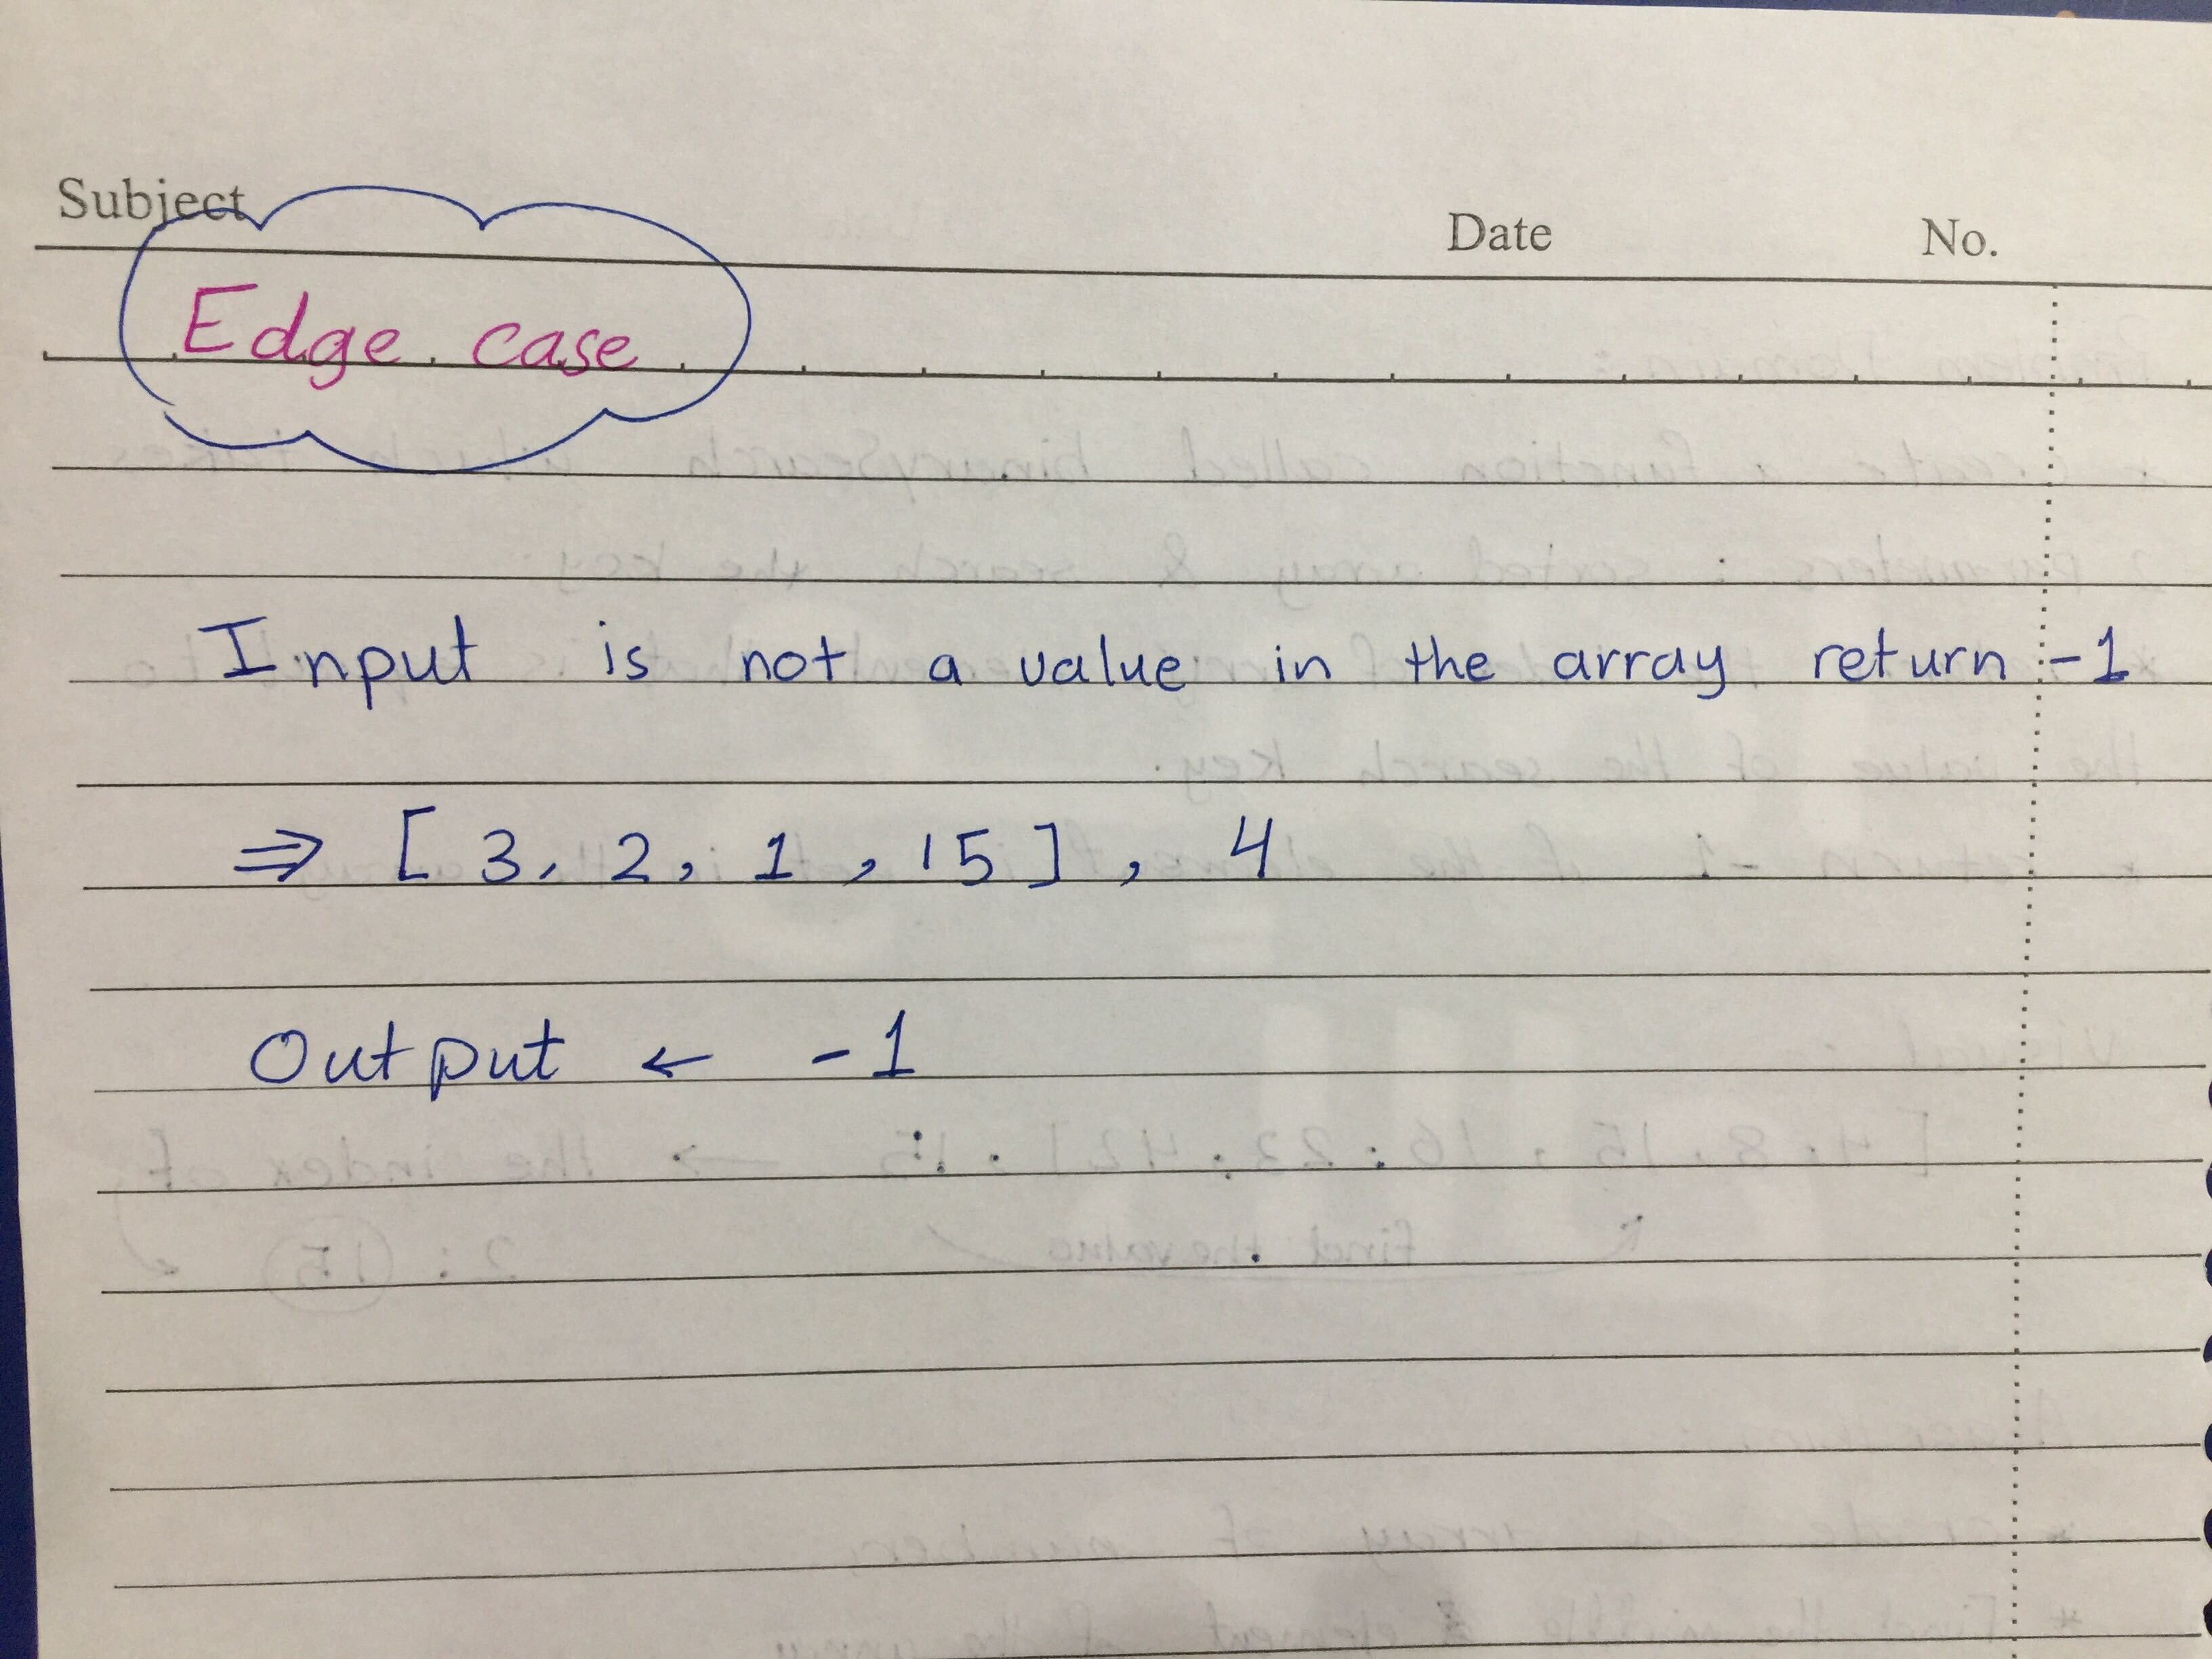 Subject Date No.
Edge case
Input is not a value in the array return -1
⇒ [ 3, 2, 1, 15 ], 4
Output ← -1